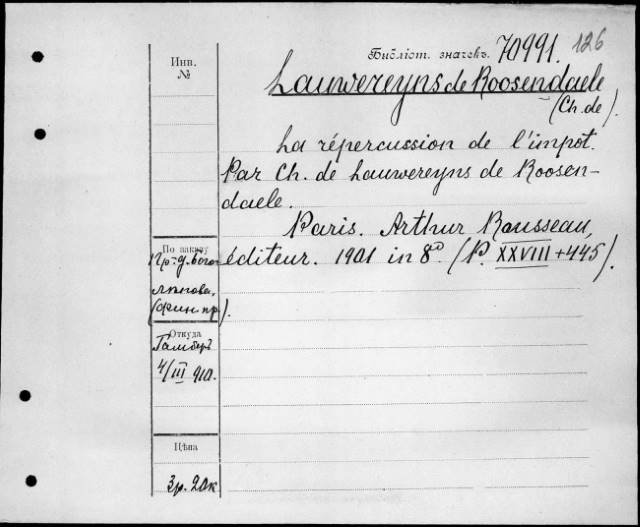 Библіот. значекъ. 70991. 126
Инв.
№
Lauwereyns de Roosendaele
(Ch. de).
La répercussion de l'impot.
Par Ch. de Lauwereyns de Roosen-
daele.
Paris. Arthur Rousseau,
éditeur. 1901 in 8º. (P. XXVIII + 445).
По заказу
Пр. д. Бого-
лѣпова,
(фин. пр.).
Откуда
Гамберъ
4/III 910.
Цѣна
3р. 20к